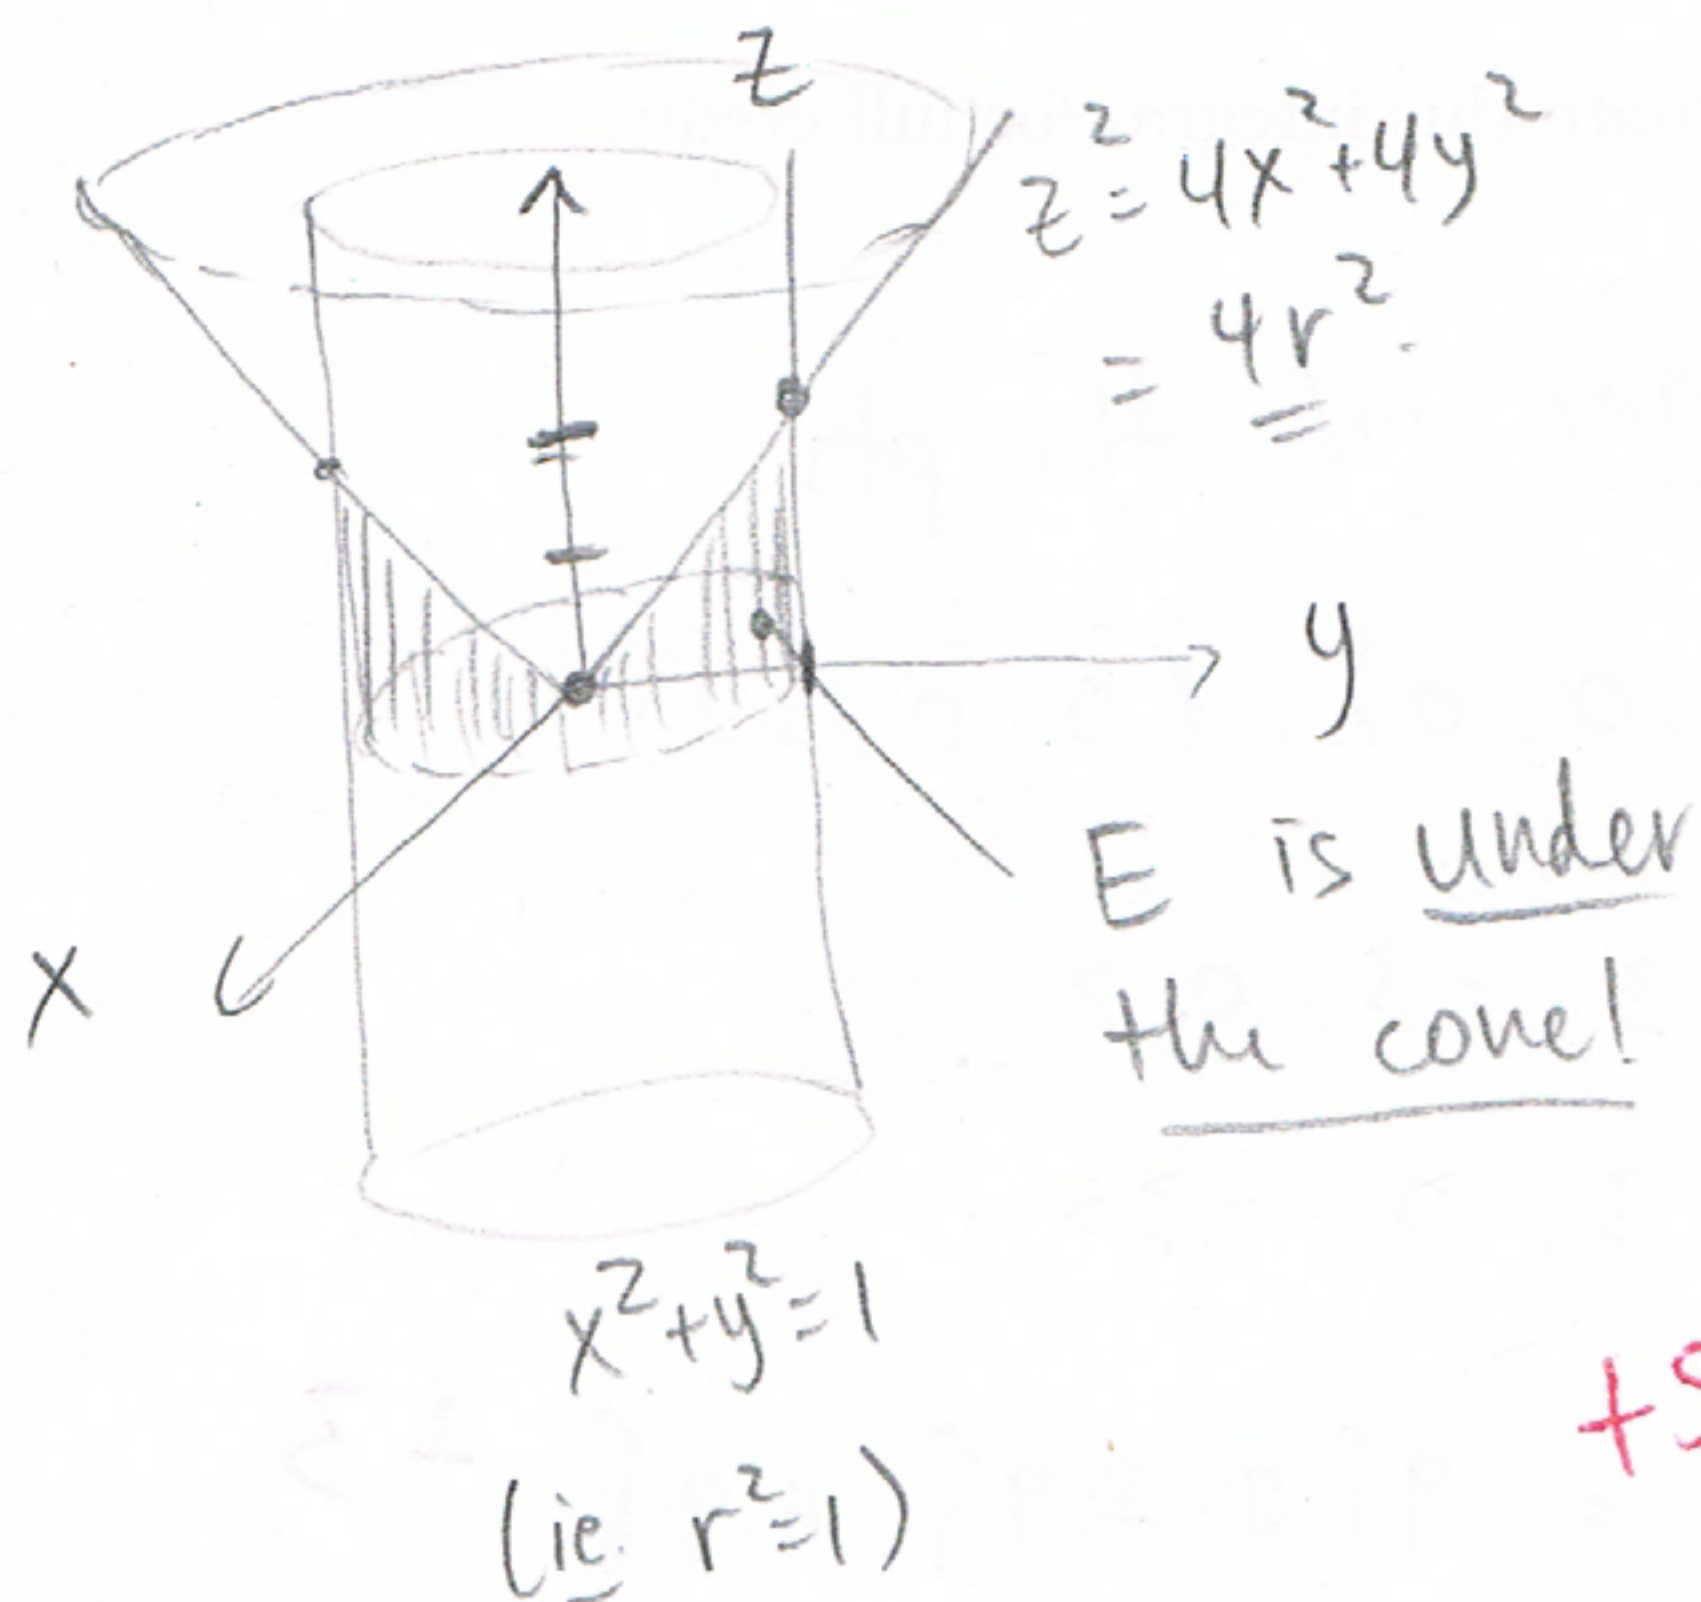 z
z² = 4x² + 4y²
= 4r²
y
E is under
the cone!
x
x² + y² = 1
(ie. r² = 1)